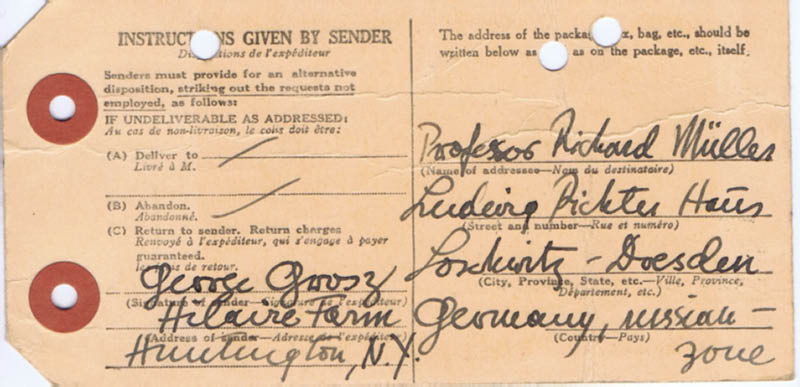 INSTRUCTIONS GIVEN BY SENDER
de l'expéditeur
Senders must provide for an alternative
disposition, striking out the requests not
employed, as follows:
IF UNDELIVERABLE AS ADDRESSED:
Au cas de non-livraison, le colis doit être:
(A) Deliver to
Livré à M.
(B) Abandon.
Abandonné.
(C) Return to sender. Return charges
Renvoyé à l'expéditeur, qui s'engage à payer
guaranteed.
de retour.
George Grosz
(Signature of sender—Signature de l'expéditeur)
Hilaire Farm
(Address of sender—Adresse de l'expéditeur)
Huntington, N.Y.
The address of the package, box, bag, etc., should be
written below as as on the package, etc., itself.
Professor Richard Müller
(Name of addressee—Nom du destinataire)
Ludwig Richter Haus
(Street and number—Rue et numéro)
Loschwitz - Dresden
(City, Province, State, etc.—Ville, Province,
Département, etc.)
Germany, russian-
(Country—Pays)
zone